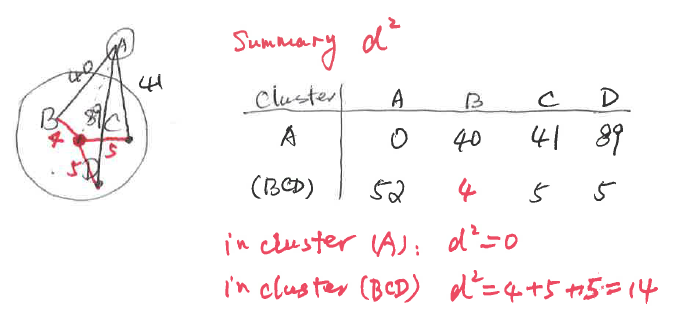 A
40
41
B
89
C
4
5
5
D
Summary d²
Cluster A B C D
A 0 40 41 89
(BCD) 52 4 5 5
in cluster (A): d²=0
in cluster (BCD) d²=4+5+5=14